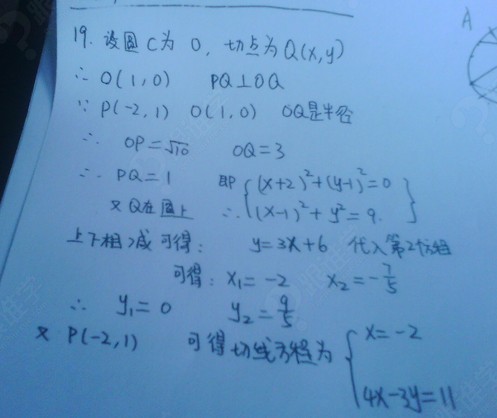 19. 设圆C为O, 切点为Q(x,y)
∴ O(1,0) PQ⊥OQ
∵ P(-2,1) O(1,0) OQ是半径
∴ OP=√10 OQ=3
∴ PQ=1 即 (x+2)²+(y-1)²=0
又Q在圆上 ∴ (x-1)²+y²=9.
上下相减可得: y=3x+6 代入第2方程
可得: x₁=-2 x₂=-7/5
∴ y₁=0 y₂=9/5
又 P(-2,1) 可得切线方程为 x=-2
4x-3y=11
A